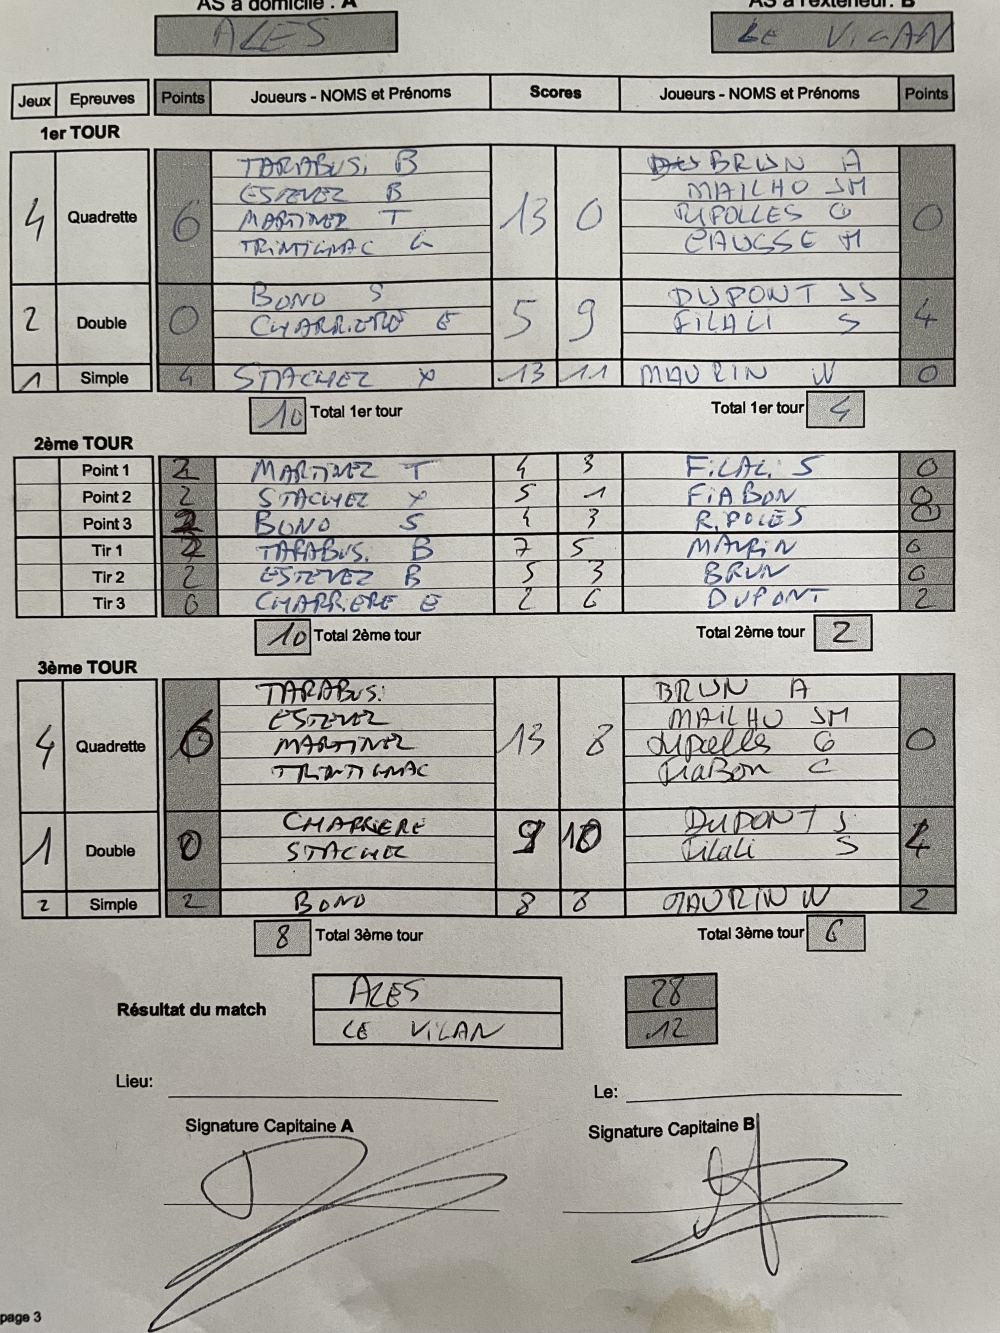 AS à domicile : A AS à l'extérieur: B
ALES LE VIGAN
Jeux Epreuves Points Joueurs - NOMS et Prénoms Scores Joueurs - NOMS et Prénoms Points
1er TOUR
4 Quadrette 6 13 0 0
TARABUS. B BRUN A
ESTEVEZ B MAILHO JM
MARTINEZ T RIPOLLES G
TRINTIGNAC G CAUSSE M
2 Double 0 5 9 4
BONO S DUPONT JS
CHARRIERE E FILALI S
1 Simple 4 STACHEZ Y 13 11 MAURIN W 0
10 Total 1er tour Total 1er tour 4
2ème TOUR
Point 1 2 MARTINEZ T 4 3 FILALI S 0
Point 2 2 STACHEZ Y 5 1 FIABON 0
Point 3 2 BONO S 4 3 RIPOLES 0
Tir 1 2 TARABUS. B 7 5 MAURIN 0
Tir 2 2 ESTEVEZ B 5 3 BRUN 0
Tir 3 0 CHARRIERE E 2 6 DUPONT 2
10 Total 2ème tour Total 2ème tour 2
3ème TOUR
4 Quadrette 6 13 8 0
TARABUS. BRUN A
ESTEVEZ MAILHO JM
MARTINEZ Ripolles G
TRINTIGNAC FiaBon C
1 Double 0 9 10 4
CHARRIERE DUPONT J
STACHEZ Filali S
2 Simple 2 BONO 8 8 MAURIN W 2
8 Total 3ème tour Total 3ème tour 6
Résultat du match
ALES 28
LE VIGAN 12
Lieu: Le:
Signature Capitaine A Signature Capitaine B
page 3